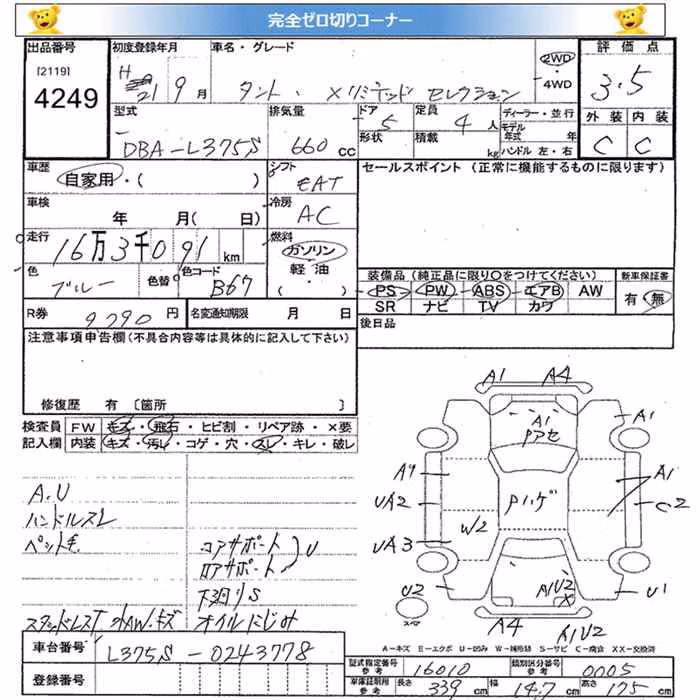 完全ゼロ切りコーナー
出品番号 初度登録年月 車名・グレード 評価点
[2119] H 21 9月 タント・Xリミテッド セレクション 2WD・4WD 3.5
4249
型式 排気量 ドア 定員 ディーラー・並行 外装 内装
DBA-L375S 660cc 5 4人 モデル年式 年 C C
形状 積載 kg ハンドル 左・右
車歴 シフト セールスポイント (正常に機能するものに限ります)
自家用・( ) EAT
車検 冷房
年 月( 日) AC
走行 燃料
16万3千091km ガソリン
色 色替 色コード 軽油 装備品 (純正品に限り○をつけてください) 新車保証書
ブルー B67 ・( ) PS PW ABS エアB AW 有・無
R券 9290円 名変通知期限 月 日 SR ナビ TV カワ
注意事項申告欄(不具合内容等は具体的に記入して下さい) 後日品
修復歴 有 〔箇所 〕
検査員 FW キズ・飛石・ヒビ割・リペア跡・×要
記入欄 内装 キズ・汚レ・コゲ・穴・スレ・キレ・破レ
A1 A4
A1 A1
Pアセ
A9 A1
UA2 Pハゲ C2
W2
UA3
U2 A1U2 U1
スペア
A4 A1U2
A.U
ハンドルスレ
ペット毛 コアサポート
ロアサポート U
下廻りS
スタッドレスT 社外AW.キズ オイルにじみ
A-キズ E-エクボ U-凹み W-補修跡 S-サビ C-腐食 XX-交換済
車台番号 L375S-0243778
登録番号
型式指定番号 参考 16010 類別区分番号 参考 0005
車庫証明用 参考 長さ 339cm 幅 147cm 高さ 175cm